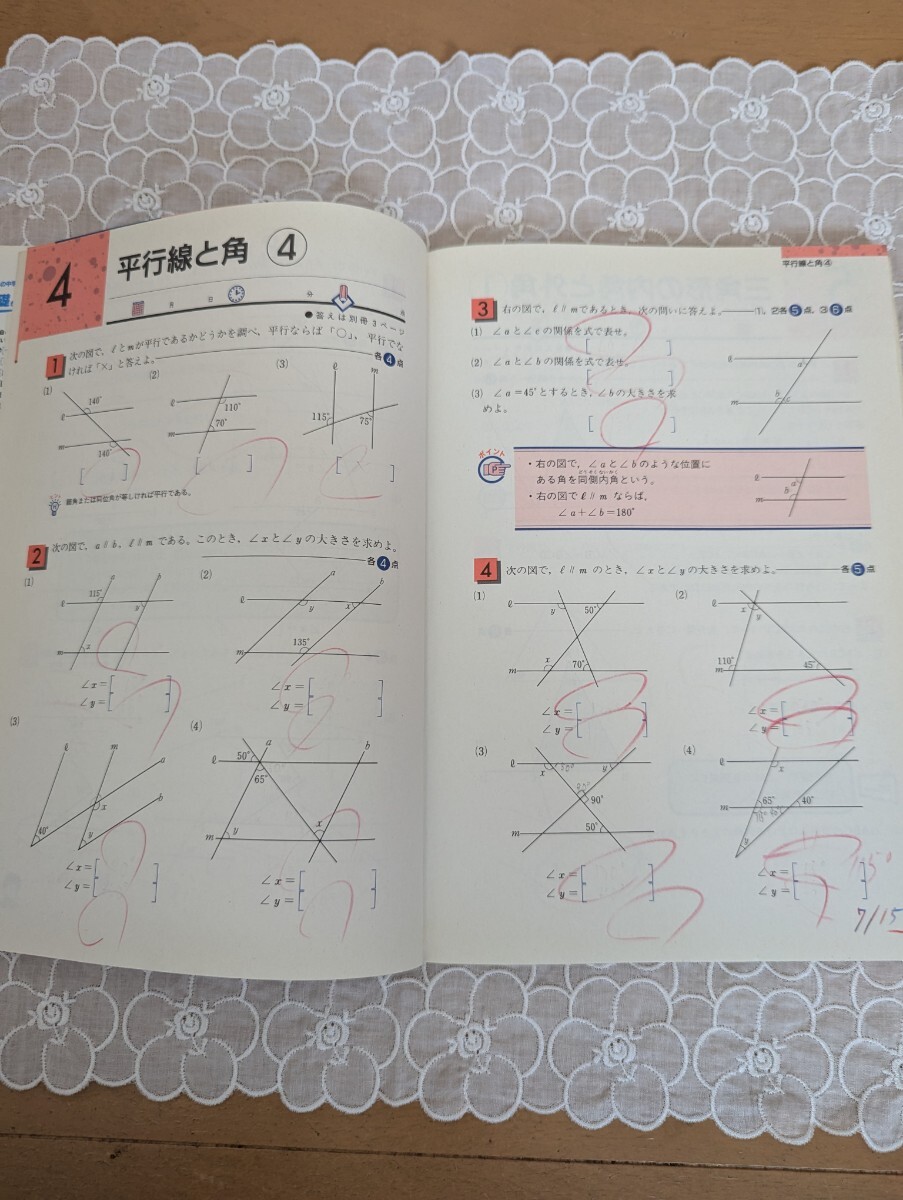 4
平行線と角 ④
月 日 分
●答えは別冊3ページ
1 次の図で、ℓとmが平行であるかどうかを調べ、平行ならば「○」、平行でな
ければ「×」と答えよ。 各4点
(1) (2) (3)
ℓ 140°
m 140°
ℓ 110°
m 70°
ℓ m
115° 75°
[ ] [ ] [ ]
錯角または同位角が等しければ平行である。
2 次の図で、a∥b、ℓ∥mである。このとき、∠xと∠yの大きさを求めよ。
各4点
(1) a b
115° ℓ y
m x
∠x=[ ]
∠y=[ ]
(2) a b
ℓ y x
135° m
∠x=[ ]
∠y=[ ]
(3) ℓ m a
x b
40° y
∠x=[ ]
∠y=[ ]
(4) a b
ℓ 50°
65°
m y x
∠x=[ ]
∠y=[ ]
平行線と角④
3 右の図で、ℓ∥mであるとき、次の問いに答えよ。 ①、②各5点、③6点
(1) ∠aと∠cの関係を式で表せ。
[ ]
(2) ∠aと∠bの関係を式で表せ。
[ ]
(3) ∠a=45°とするとき、∠bの大きさを求
めよ。
[ ]
ℓ a
m b c
ポイント
P
・右の図で、∠aと∠bのような位置に
どうそくないかく
ある角を同側内角という。
・右の図でℓ∥mならば、
∠a+∠b=180°
ℓ a
m b
4 次の図で、ℓ∥mのとき、∠xと∠yの大きさを求めよ。 各5点
(1) ℓ y 50°
m x 70°
∠x=[ ]
∠y=[ ]
(2) ℓ x y
m 110° 45°
∠x=[ ]
∠y=[ ]
(3) ℓ x y
90°
m 50°
∠x=[ ]
∠y=[ ]
(4) ℓ x
m 65° 40°
y
∠x=[ ]
∠y=[ ]
7/15